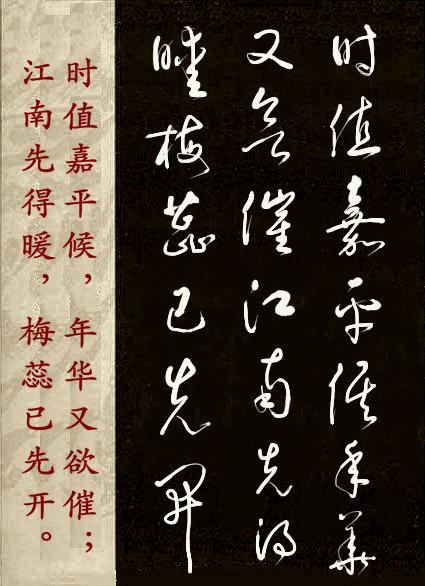 时值嘉平候年華
又欲催江南先得
暖梅蕊已先開
时值嘉平候，年华又欲催；
江南先得暖，梅蕊已先开。